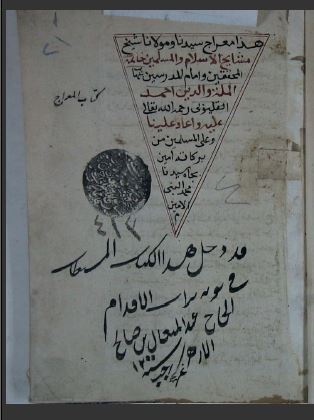 هذا معراج سيدنا ومولانا شيخ
مشايخ الاسلام والمسلمين خاتمة
المحققين وامام المدرسين شهاب
الملة والدين احمد
القليوبي رحمه الله تعالى
عليه واعاد علينا
وعلى المسلمين من
بركاته امين
بجاه سيدنا
محمد النبي
الامين
م
كتاب المعراج
٤١٣
قد دخل هذا الكتاب
في نوبة تراب الاقدام
الحاج عبد المتعال بن صالح